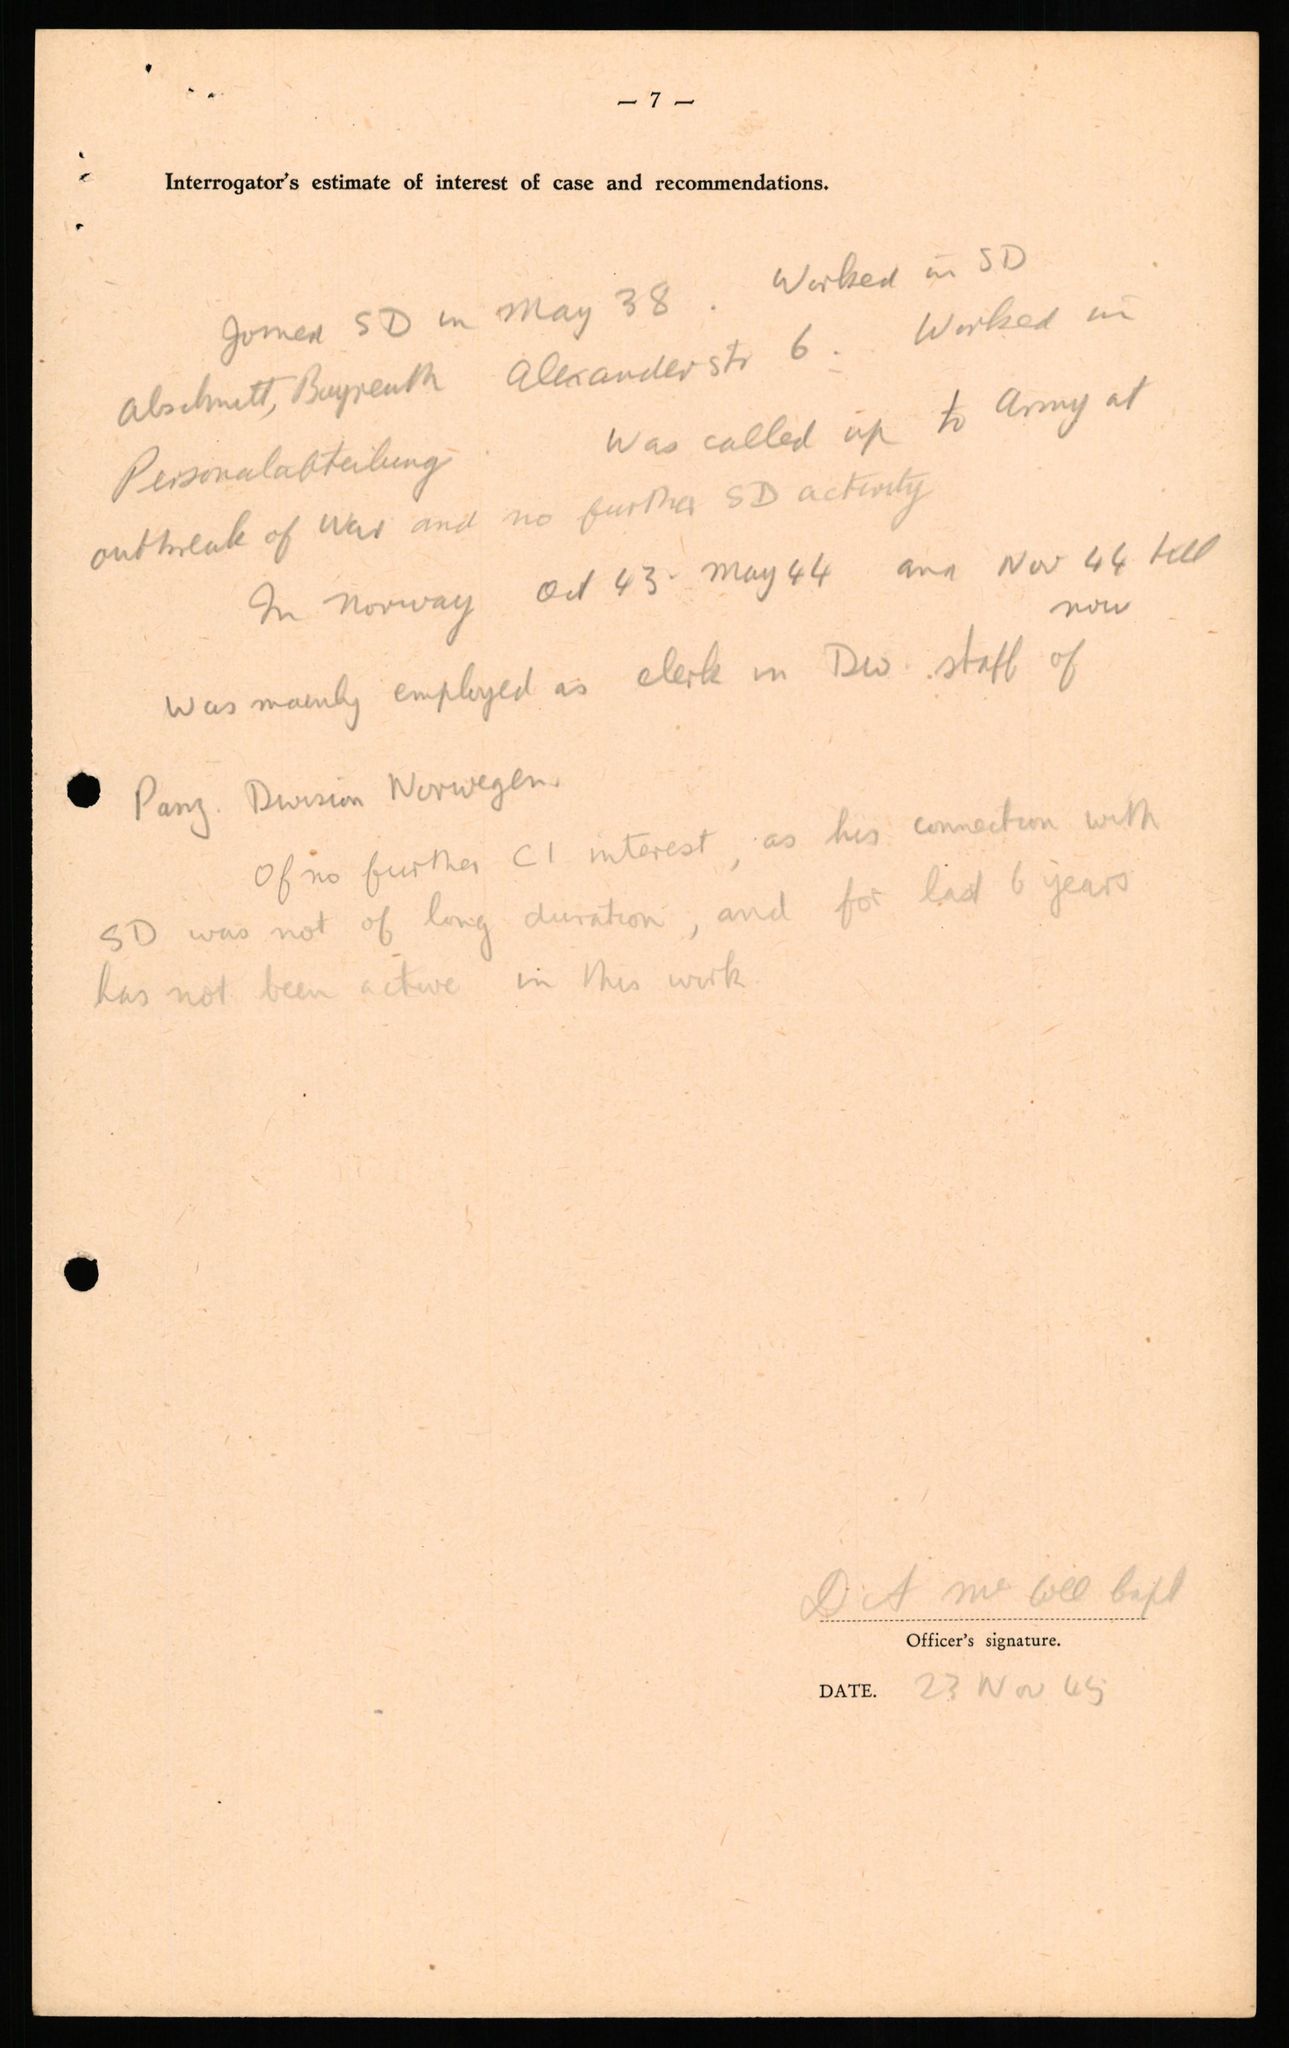 — 7 —
Interrogator's estimate of interest of case and recommendations.
Joined SD in May 38. Worked in SD
Abschnitt, Bayreuth Alexanderstr 6. Worked in
Personalabteilung. Was called up to Army at
outbreak of War and no further SD activity
In Norway Oct 43 - May 44 and Nov 44 till
now
Was mainly employed as clerk in Div. staff of
Panz. Division Norwegen.
Of no further CI interest, as his connection with
SD was not of long duration, and for last 6 years
has not been active in this work.
D A Mc Capt
Officer's signature.
DATE. 23 Nov 45